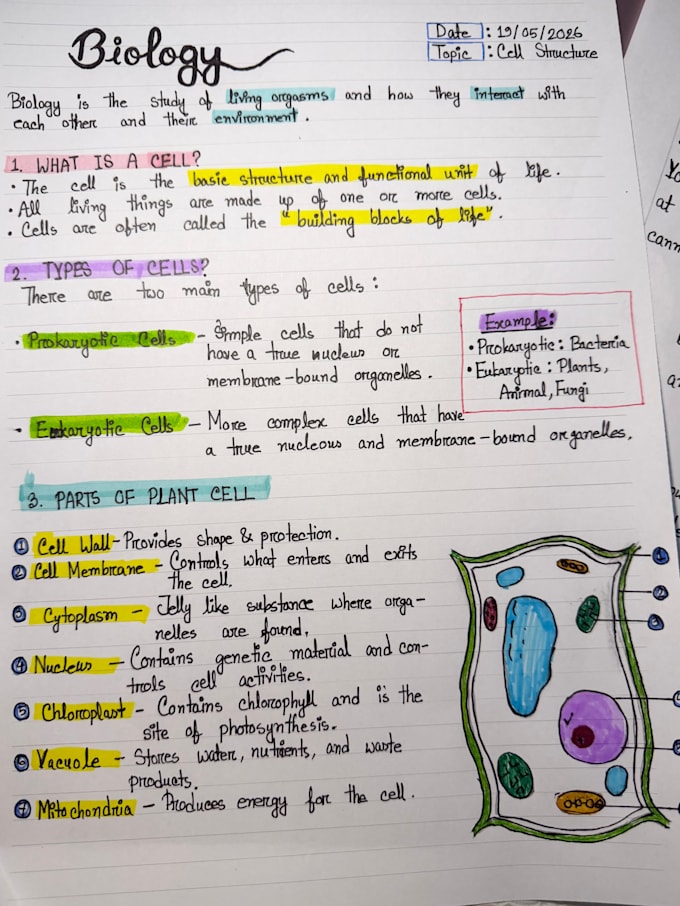 Biology
Date : 19/05/2026
Topic : Cell Structure
Biology is the study of living orgasms and how they interact with
each other and their environment.
1. WHAT IS A CELL?
• The cell is the basic structure and functional unit of life.
• All living things are made up of one or more cells.
• Cells are often called the "building blocks of life".
2. TYPES OF CELLS?
There are two main types of cells :
• Prokaryotic Cells – Simple cells that do not
have a true nucleus or
membrane-bound organelles.
Example:
• Prokaryotic : Bacteria
• Eukaryotic : Plants,
Animal, Fungi
• Eukaryotic Cells – More complex cells that have
a true nucleous and membrane-bound organelles.
3. PARTS OF PLANT CELL
① Cell Wall – Provides shape & protection.
② Cell Membrane – Controls what enters and exits
the cell.
③ Cytoplasm – Jelly like substance where orga-
nelles are found.
④ Nucleus – Contains genetic material and con-
trols cell activities.
⑤ Chloroplast – Contains chlorophyll and is the
site of photosynthesis.
⑥ Vacuole – Stores water, nutrients, and waste
products.
⑦ Mitochondria – Produces energy for the cell.
①
②
③
at
cann